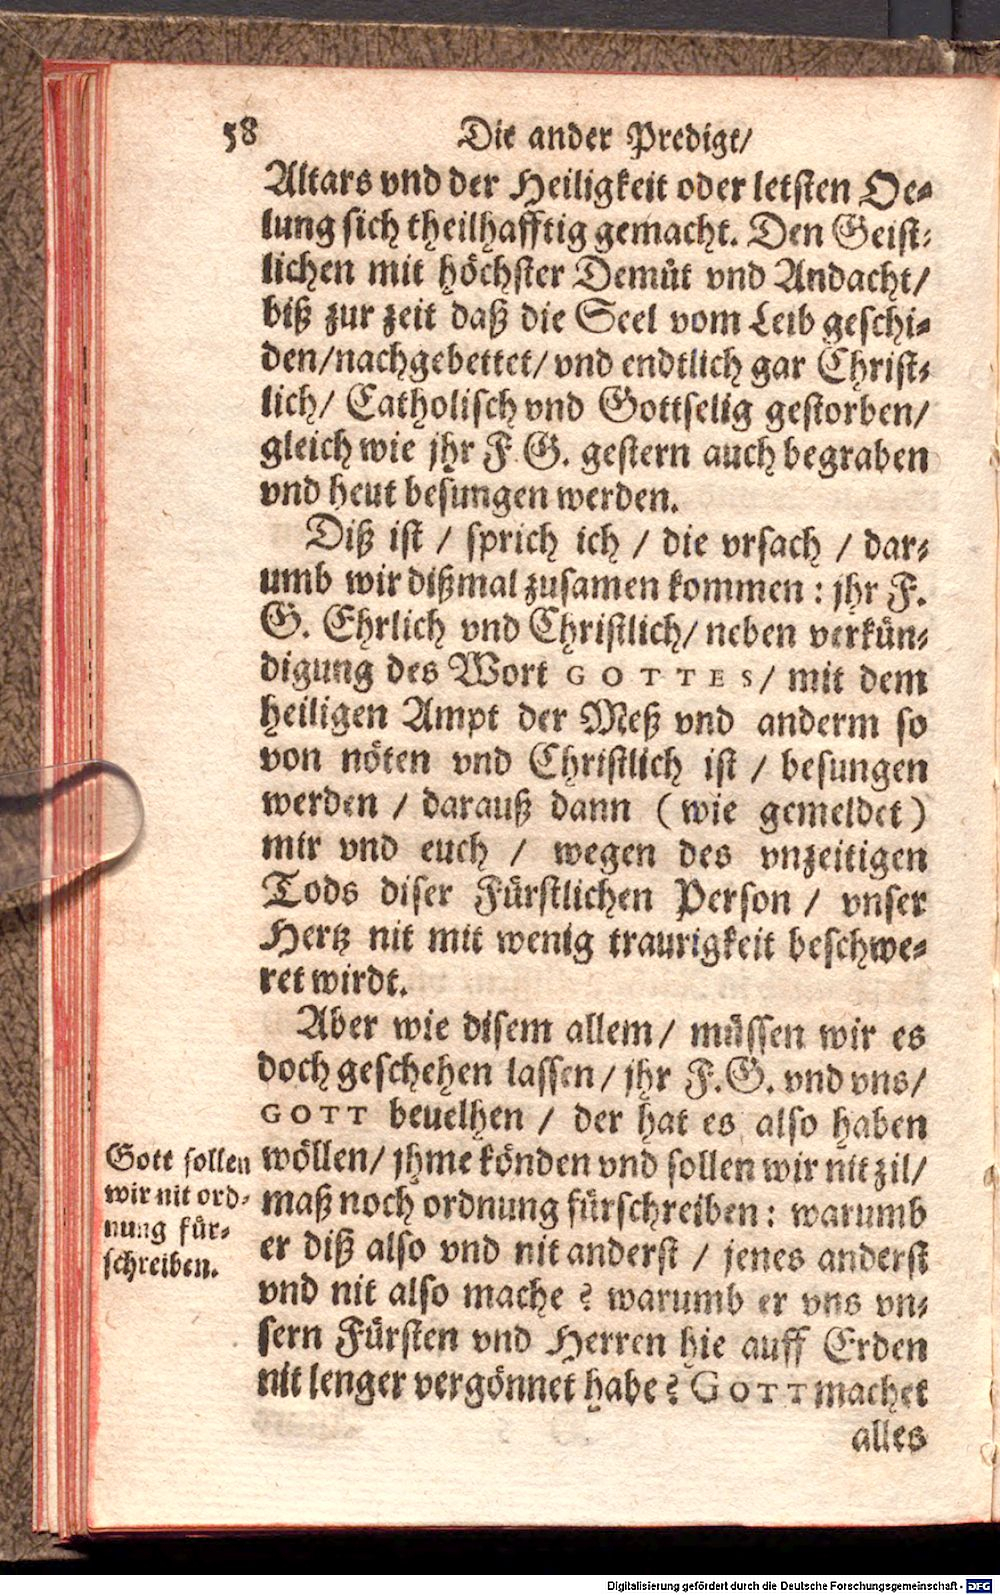 58 Die ander Predigt/
Altars vnd der Heiligkeit oder letsten Oe-
lung sich theilhafftig gemacht. Den Geist-
lichen mit höchster Demůt vnd Andacht/
biß zur zeit daß die Seel vom Leib geschi-
den/nachgebettet/ vnd endtlich gar Christ-
lich/ Catholisch vnd Gottselig gestorben/
gleich wie jhr F. G. gestern auch begraben
vnd heut besungen werden.
Diß ist / sprich ich / die vrsach / dar-
umb wir dißmal zusamen kommen : jhr F.
G. Ehrlich vnd Christlich/ neben verkün-
digung des Wort GOTTES/ mit dem
heiligen Ampt der Meß vnd anderm so
von nöten vnd Christlich ist / besungen
werden / darauß dann (wie gemeldet)
mir vnd euch / wegen des vnzeitigen
Tods diser Fürstlichen Person / vnser
Hertz nit mit wenig traurigkeit beschwe-
ret wirdt.
Aber wie disem allem/ müssen wir es
doch geschehen lassen/ jhr F.G. vnd vns/
GOTT beuelhen / der hat es also haben
wöllen/ jhme könden vnd sollen wir nit zil/
maß noch ordnung fürschreiben: warumb
er diß also vnd nit anderst / jenes anderst
vnd nit also mache ? warumb er vns vn-
sern Fürsten vnd Herren hie auff Erden
nit lenger vergönnet habe? GOTT machet
alles
Gott sollen
wir nit ord-
nung für-
schreiben.
Digitalisierung gefördert durch die Deutsche Forschungsgemeinschaft - DFG